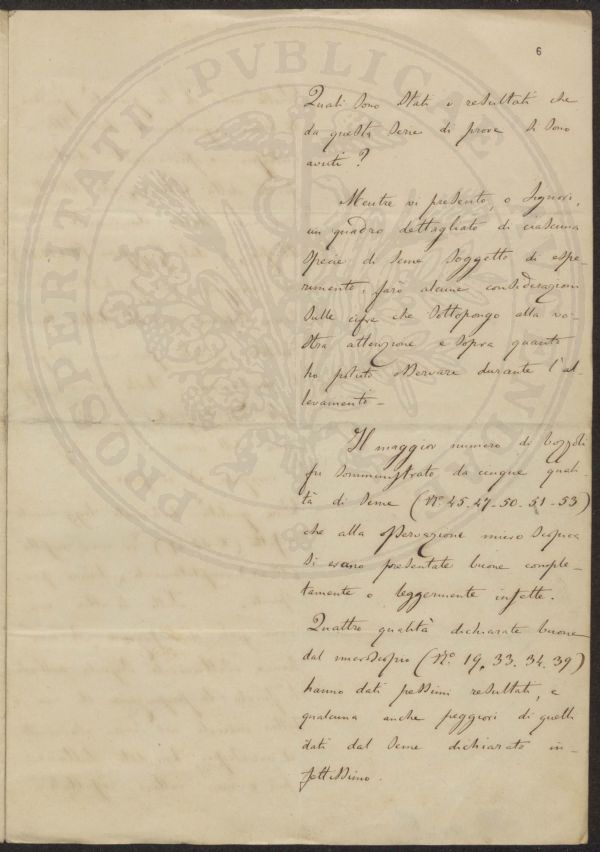 6
Quali sono stati i resultati che
da questa serie di prove si sono
avuti?
Mentre vi presento, o Signori,
un quadro dettagliato di ciascuna
specie di seme soggetto di espe-
rimento, farò alcune considerazioni
sulle cifre che sottopongo alla vo-
stra attenzione e sopra quanto
ho potuto osservare durante l'al
levamento -
Il maggior numero di bozzoli
fu somministrato da cinque quali-
tà di seme (No. 45-47-50-51-53)
che alla osservazione microscopica
si erano presentate buone comple-
tamente o leggermente infette.
Quattro qualità dichiarate buone
dal microscopio (No. 19, 33. 34. 39)
hanno dati pessimi resultati, e
qualcuna anche peggiori di quelli
dati dal seme dichiarato in-
fettissimo.
PROSPERITATI PVBLICAE